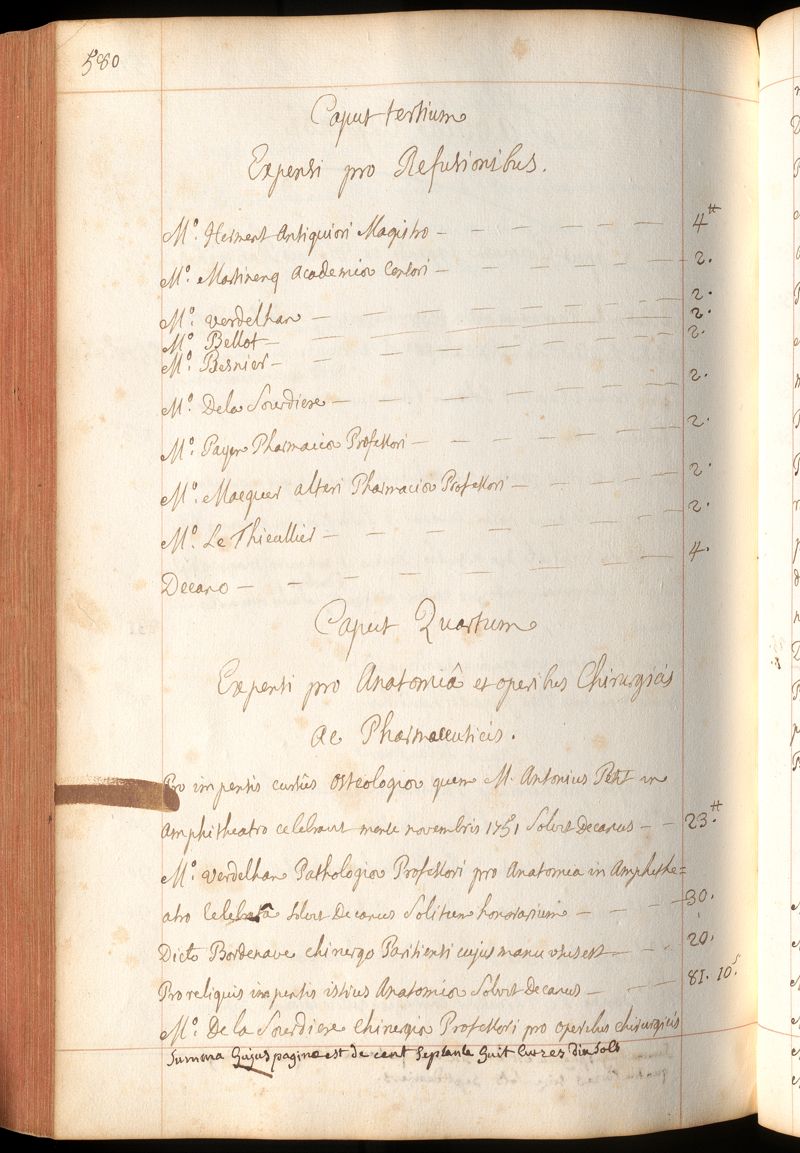 580
Caput tertium
Expensi pro Refusionibus.
M.o Herment Antiquiori Magistro — 4 ₶
M.o Martinenq Academiæ Censori — 2.
M.o Verdelhan — 2.
M.o Bellot — 2.
M.o Besnier — 2.
M.o De la Sourdiere — 2.
M.o Payen Pharmaciæ Professori — 2.
M.o Macquer alteri Pharmaciæ Professori — 2.
M.o Le Thieullier — 2.
Decano — 4.
Caput Quartum
Expensi pro Anatomiâ et operibus Chirurgicis
ac Pharmaceuticis.
Pro impensis cursûs Osteologiæ quem M. Antonius Petit in
Amphitheatro celebravit mense novembris 1751 Solvit Decanus — 23 ₶.
M.o Verdelhan Pathologiæ Professori pro Anatomia in Amphithe=
atro Celebratâ Solvit Decanus Solitum honorarium — 30.
Dicto Bordenave chirurgo Parisiensi cujus manu usus est — 20.
Pro reliquis impensis istius Anatomiæ Solvit Decanus — 81. 10 s.
M.o De la Sourdiere Chirurgiæ Professori pro operibus chirurgicis
Summa hujus paginæ est de cent Septante huit livres dix Sols